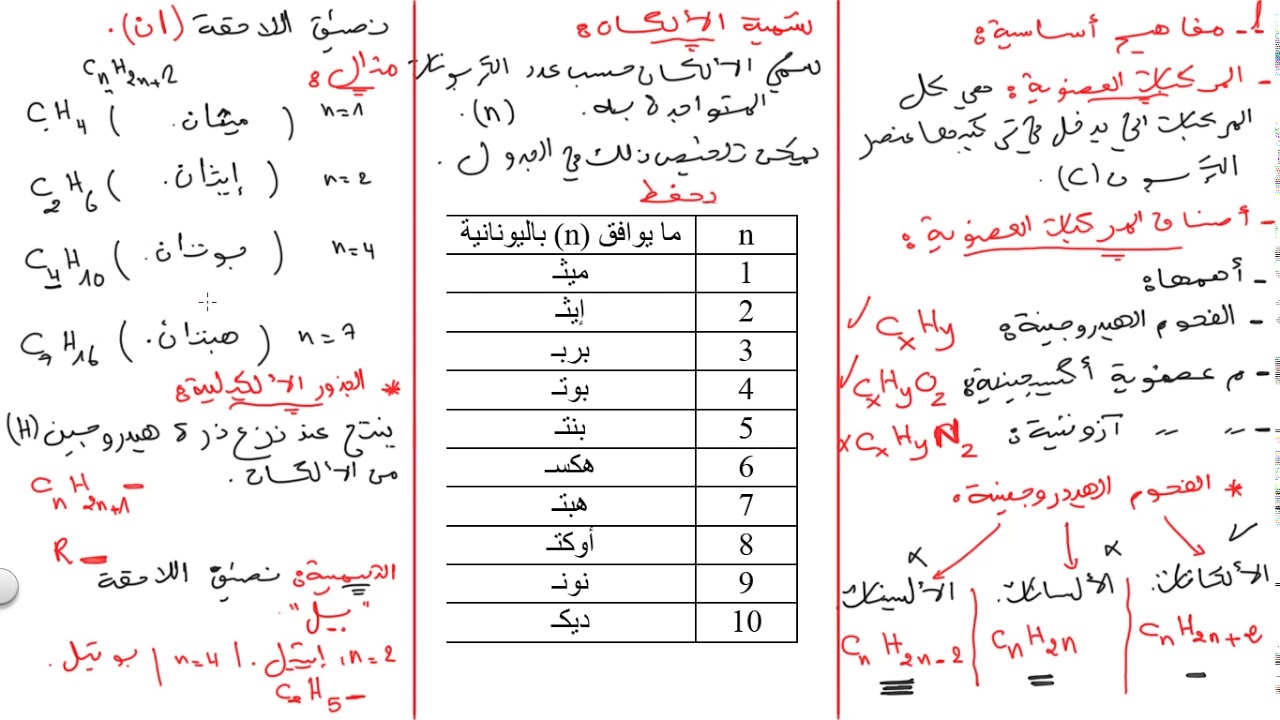 1- مفاهيم أساسية:
- المركبات العضوية: هي كل
المركبات التي يدخل في تركيبها عنصر
الكربون (C).
- أصناف المركبات العضوية:
- أهمها:
- الفحوم الهيدروجينية: CxHy ✓
- م عضوية أكسجينية: CxHyO2 ✓
- ״ ״ آزوتية: CxHyN2 x
* الفحوم الهيدروجينية:
الألكانات. ✓ الألسانات. x الألسينات x
CnH2n+2 CnH2n CnH2n-2
تسمية الألكانات:
نسمي الألكان حسب عدد الكربونات
المتواجدة به. (n).
يمكن تلخيص ذلك في الجدول.
تحفظ
n ما يوافق (n) باليونانية
1 ميثـ
2 إيثـ
3 بربـ
4 بوتـ
5 بنتـ
6 هكسـ
7 هبتـ
8 أوكتـ
9 نونـ
10 ديكـ
نضيف اللاحقة (ان).
مثال: CnH2n+2
n=1 (ميثان.) CH4
n=2 (إيثان.) C2H6
n=4 (بوتان.) C4H10
n=7 (هبتان.) C7H16
* الجذور الألكيلية:
ينتج عند نزع ذرة هيدروجين (H)
من الألكان.
CnH2n+1 -
R -
التسمية: نضيف اللاحقة
"يل".
n=2، إيتيل. | n=4 | بوتيل.
C2H5-